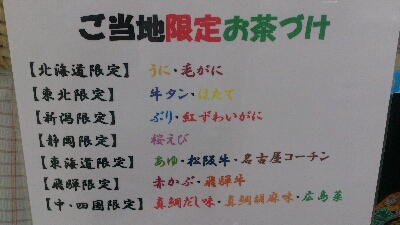 ご当地限定お茶づけ
【北海道限定】 うに・毛がに
【東北限定】 牛タン・ほたて
【新潟限定】 ぶり・紅ずわいがに
【静岡限定】 桜えび
【東海道限定】 あゆ・松阪牛・名古屋コーチン
【飛騨限定】 赤かぶ・飛騨牛
【中・四国限定】 真鯛だし味・真鯛胡麻味・広島菜